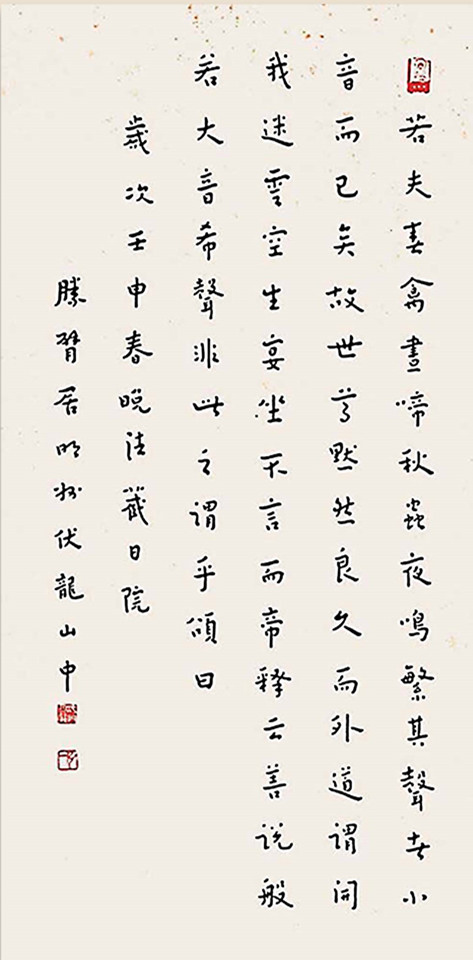 若夫春禽晝啼秋蟲夜鳴繁其聲者小
音而已矣故世尊默然良久而外道謂開
我迷雲空生宴坐不言而帝釋云善說般
若大音希聲非此之謂乎頌曰
歲次壬申春晚法藏日院
勝臂居明州伏龍山中